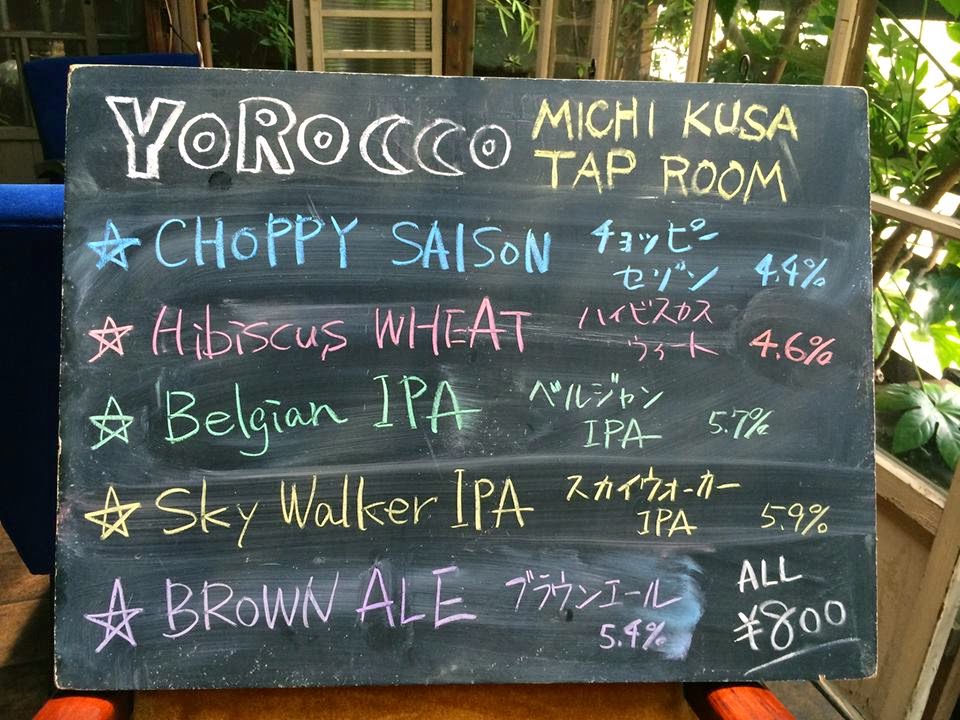 YOROCCO MICHI KUSA
TAP ROOM
☆ CHOPPY SAISON チョッピー
セゾン 4.4%
☆ Hibiscus WHEAT ハイビスカス
ウィート 4.6%
☆ Belgian IPA ベルジャン
IPA 5.7%
☆ Sky Walker IPA スカイウォーカー
IPA 5.9%
☆ BROWN ALE ブラウンエール
5.4%
ALL
¥800